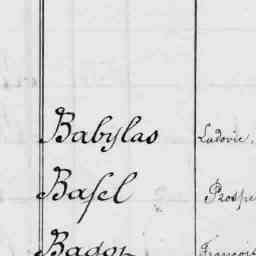 Babylas Ludovic.
Basel Prospe
Bagot François